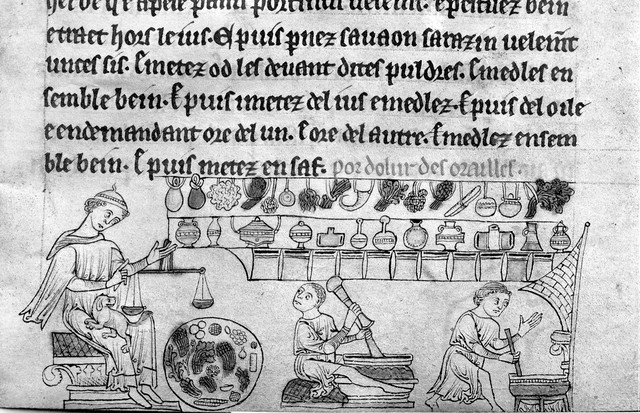 her de q̃ apele pami porcinul ueleiñt. Epernez bein
etraet hors leius. Epuis p̃nez sauaon sarazin ueleiñt
unces sis. Emetez od les deuant dites puldres. Emedles en
semble bein. Epuis metez del ius emedlez. Epuis del oile
e en demandant ore del un. Eore del autre. Emedlez ensem
ble bein. Epuis metez en saf. por dolur des orailles.